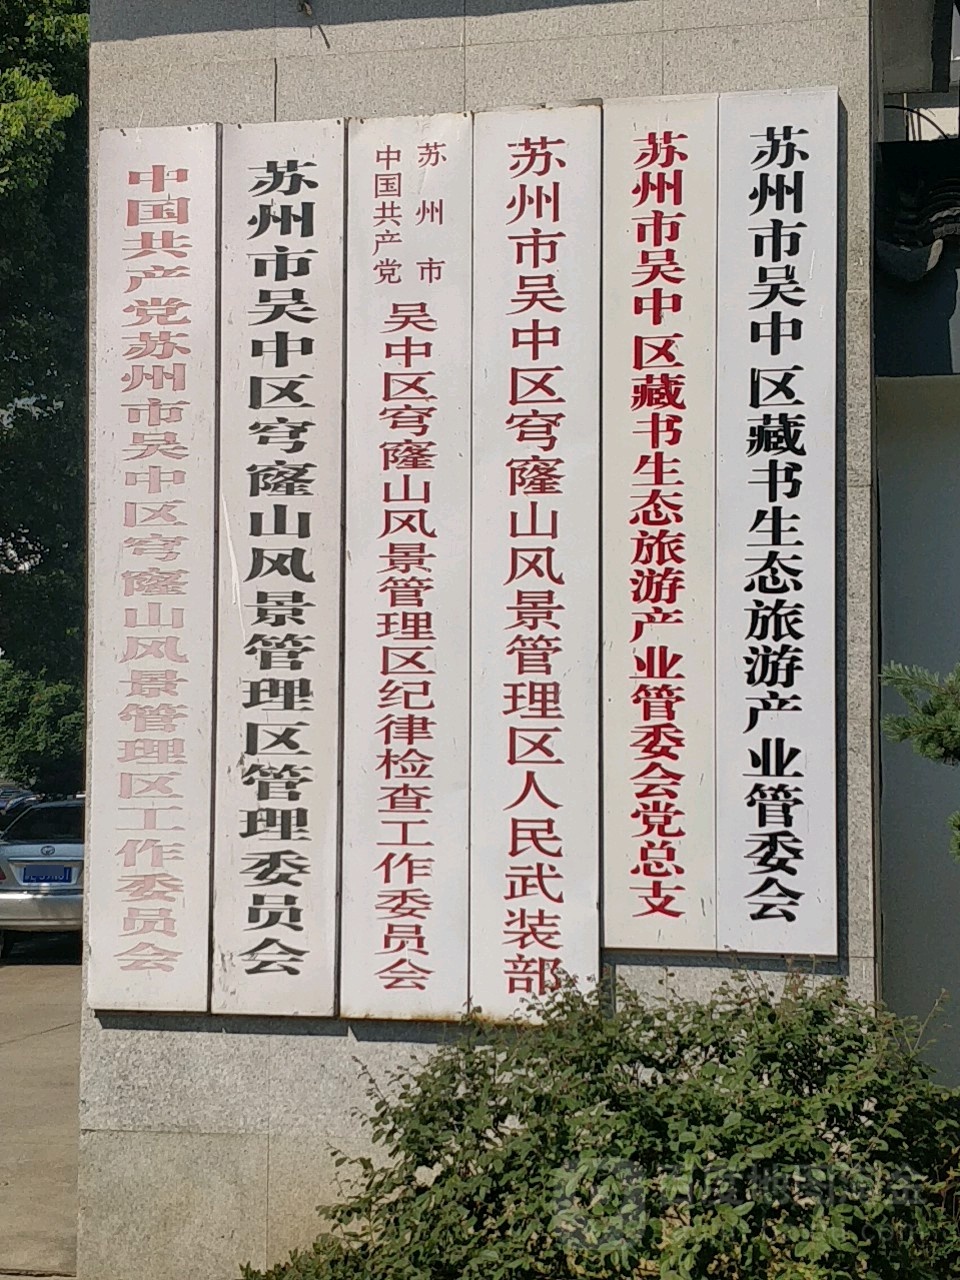 中国共产党苏州市吴中区穹窿山风景管理区工作委员会
苏州市吴中区穹窿山风景管理区管理委员会
中国共产党
苏州市
吴中区穹窿山风景管理区纪律检查工作委员会
苏州市吴中区穹窿山风景管理区人民武装部
苏州市吴中区藏书生态旅游产业管委会党总支
苏州市吴中区藏书生态旅游产业管委会